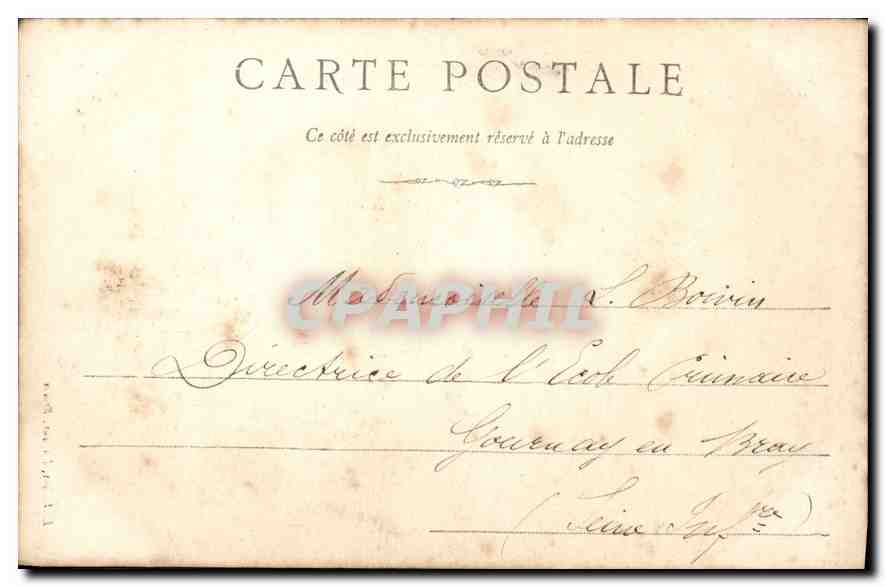 CARTE POSTALE
Ce côté est exclusivement réservé à l'adresse
CPAPHIL
Mademoiselle L. Boivin
Directrice de l'Ecole Primaire
Gournay en Bray
(Seine Infre)